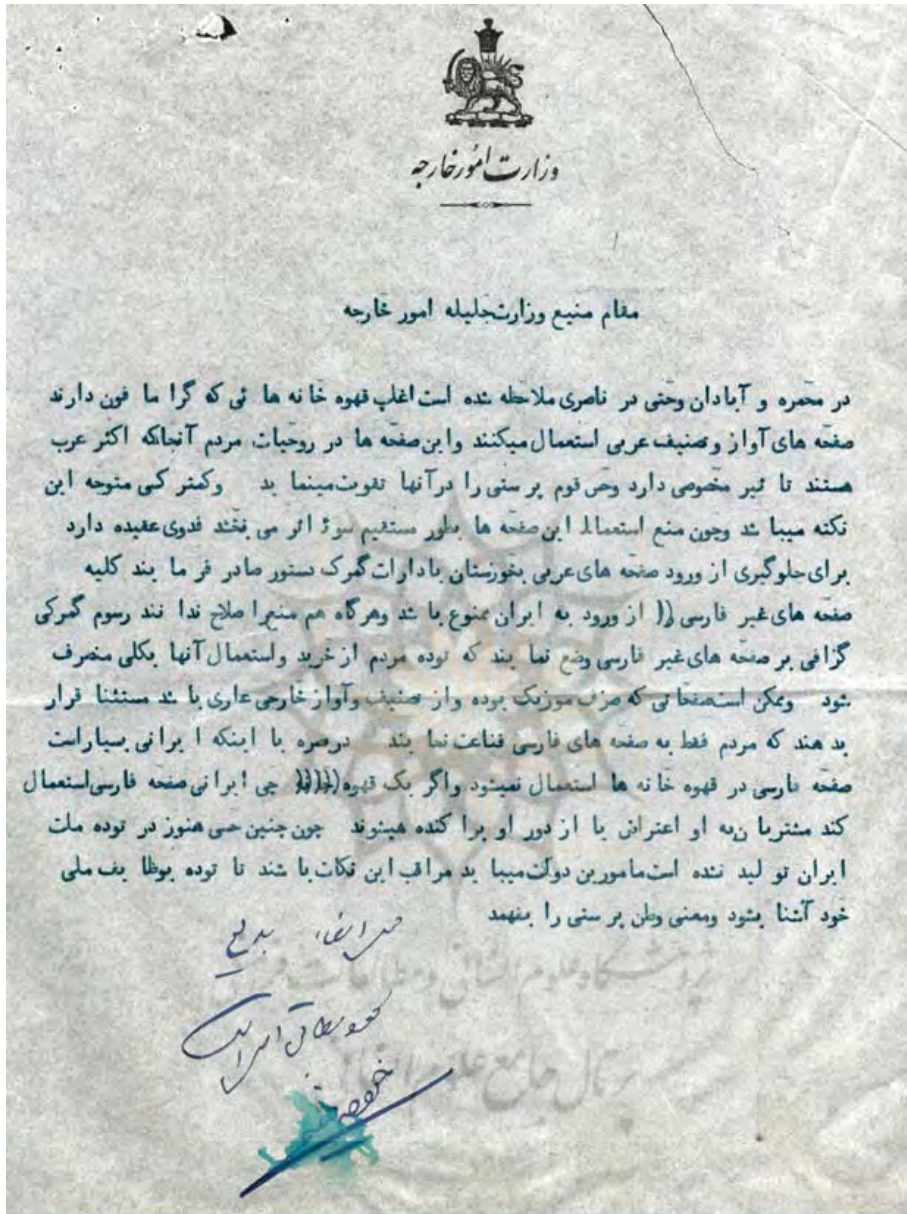 وزارت امور خارجه
مقام منیع وزارت جلیله امور خارجه
در محمره و آبادان وحتی در ناصری ملاحظه شده است اغلب قهوه خانه ها ئی که گرا ما فون دارند
صفحه های آواز وتصنیف عربی استعمال میکنند واین صفحه ها در روحیات مردم آنجاکه اکثر عرب
هستند تا ثیر مخصوصی دارد وحس قوم پرستی را درآنها تقویت مینما ید وکمتر کسی متوجه این
نکته میبا شد وچون منع استعمال این صفحه ها بطور مستقیم سوءِ اثر می بخشد فدوی عقیده دارد
برای جلوگیری از ورود صفحه های عربی بخوزستان بادارات گمرک دستور صادر فر ما یند کلیه
صفحه های غیر فارسی (( از ورود به ایران ممنوع با شد وهرگاه هم منع را صلاح ندا نند رسوم گمرکی
گزافی بر صفحه های غیر فارسی وضع نما یند که توده مردم از خرید واستعمال آنها بکلی منصرف
شود وممکن است صفحا تی که صرف موزیک بوده واز تصنیف وآواز خارجی عاری با شد مستثنا قرار
بد هند که مردم فقط به صفحه های فارسی قناعت نما یند درصره با اینکه ا یرانی بسیاراست
صفحه فارسی در قهوه خا نه ها استعمال نمیشود واگر یک قهوه چی ایرانی صفحه فارسی استعمال
کند مشتریا ن به او اعتراض یا از دور او پرا کنده میشوند چون چنین حسی هنوز در توده ملت
ایران تو لید نشده است مامورین دولت میبا ید مراقب این نکات با شند تا توده بوظا یف ملی
خود آشنا بشود ومعنی وطن پر ستی را بفهمد
محل امضاء بدیع
سواد مطابق اصل است
پژوهشگاه علوم انسانی و مطالعات فرهنگی
پرتال جامع علوم انسانی